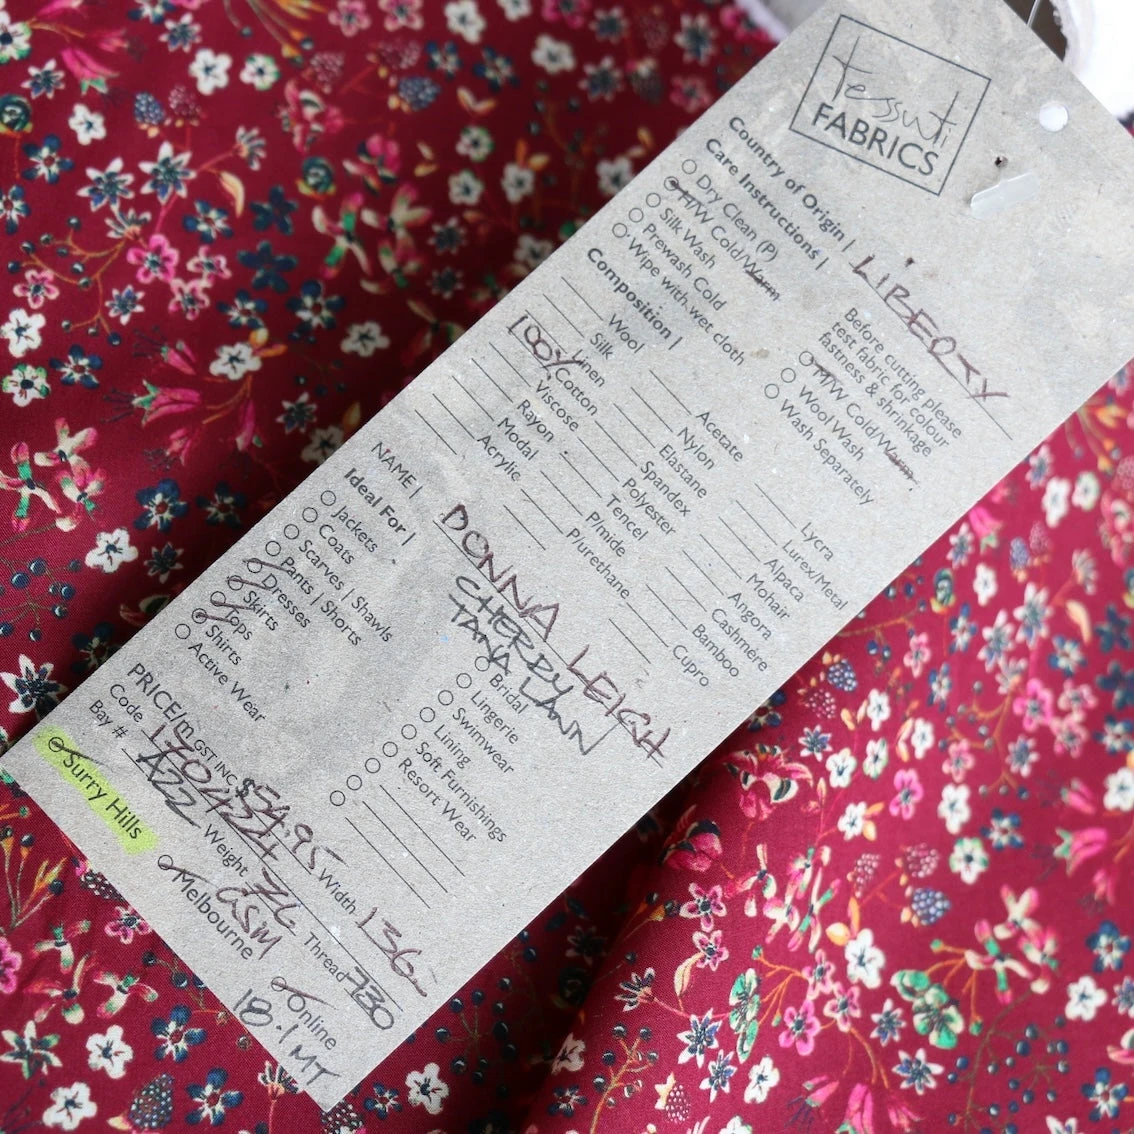 tessuti
FABRICS
Country of Origin | LIBERTY
Care Instructions |
Dry Clean (P)
H/W Cold/Warm
Silk Wash
Prewash Cold
Wipe with wet cloth
Before cutting please
test fabric for colour
fastness & shrinkage
M/W Cold/Warm
Wool Wash
Wash Separately
Composition |
Wool
Silk
Linen
100% Cotton
Viscose
Rayon
Modal
Acrylic
Acetate
Nylon
Elastane
Spandex
Polyester
Tencel
P/mide
P/urethane
Lycra
Lurex/Metal
Alpaca
Mohair
Angora
Cashmére
Bamboo
Cupro
NAME | DONNA LEIGH
CHERRY
TANA LAWN
Ideal For |
Jackets
Coats
Scarves | Shawls
Pants | Shorts
Dresses
Skirts
Tops
Shirts
Active Wear
Bridal
Lingerie
Swimwear
Lining
Soft Furnishings
Resort Wear
PRICE/m GST INC. $54.95 Width 136
Code 170424 Weight 76 GSM Thread 730
Bay # A22
Surry Hills
Melbourne
Online
18.1 MT